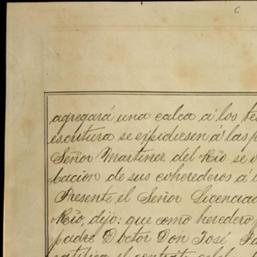 agregará una calca á los te
escritura se expidiesen á las p
Señor Martinez del Rio se o
bacion de sus coherederos á
Presente el Señor Licencia
Rio, dijo: que como heredero
padre Doctor Don José Pa